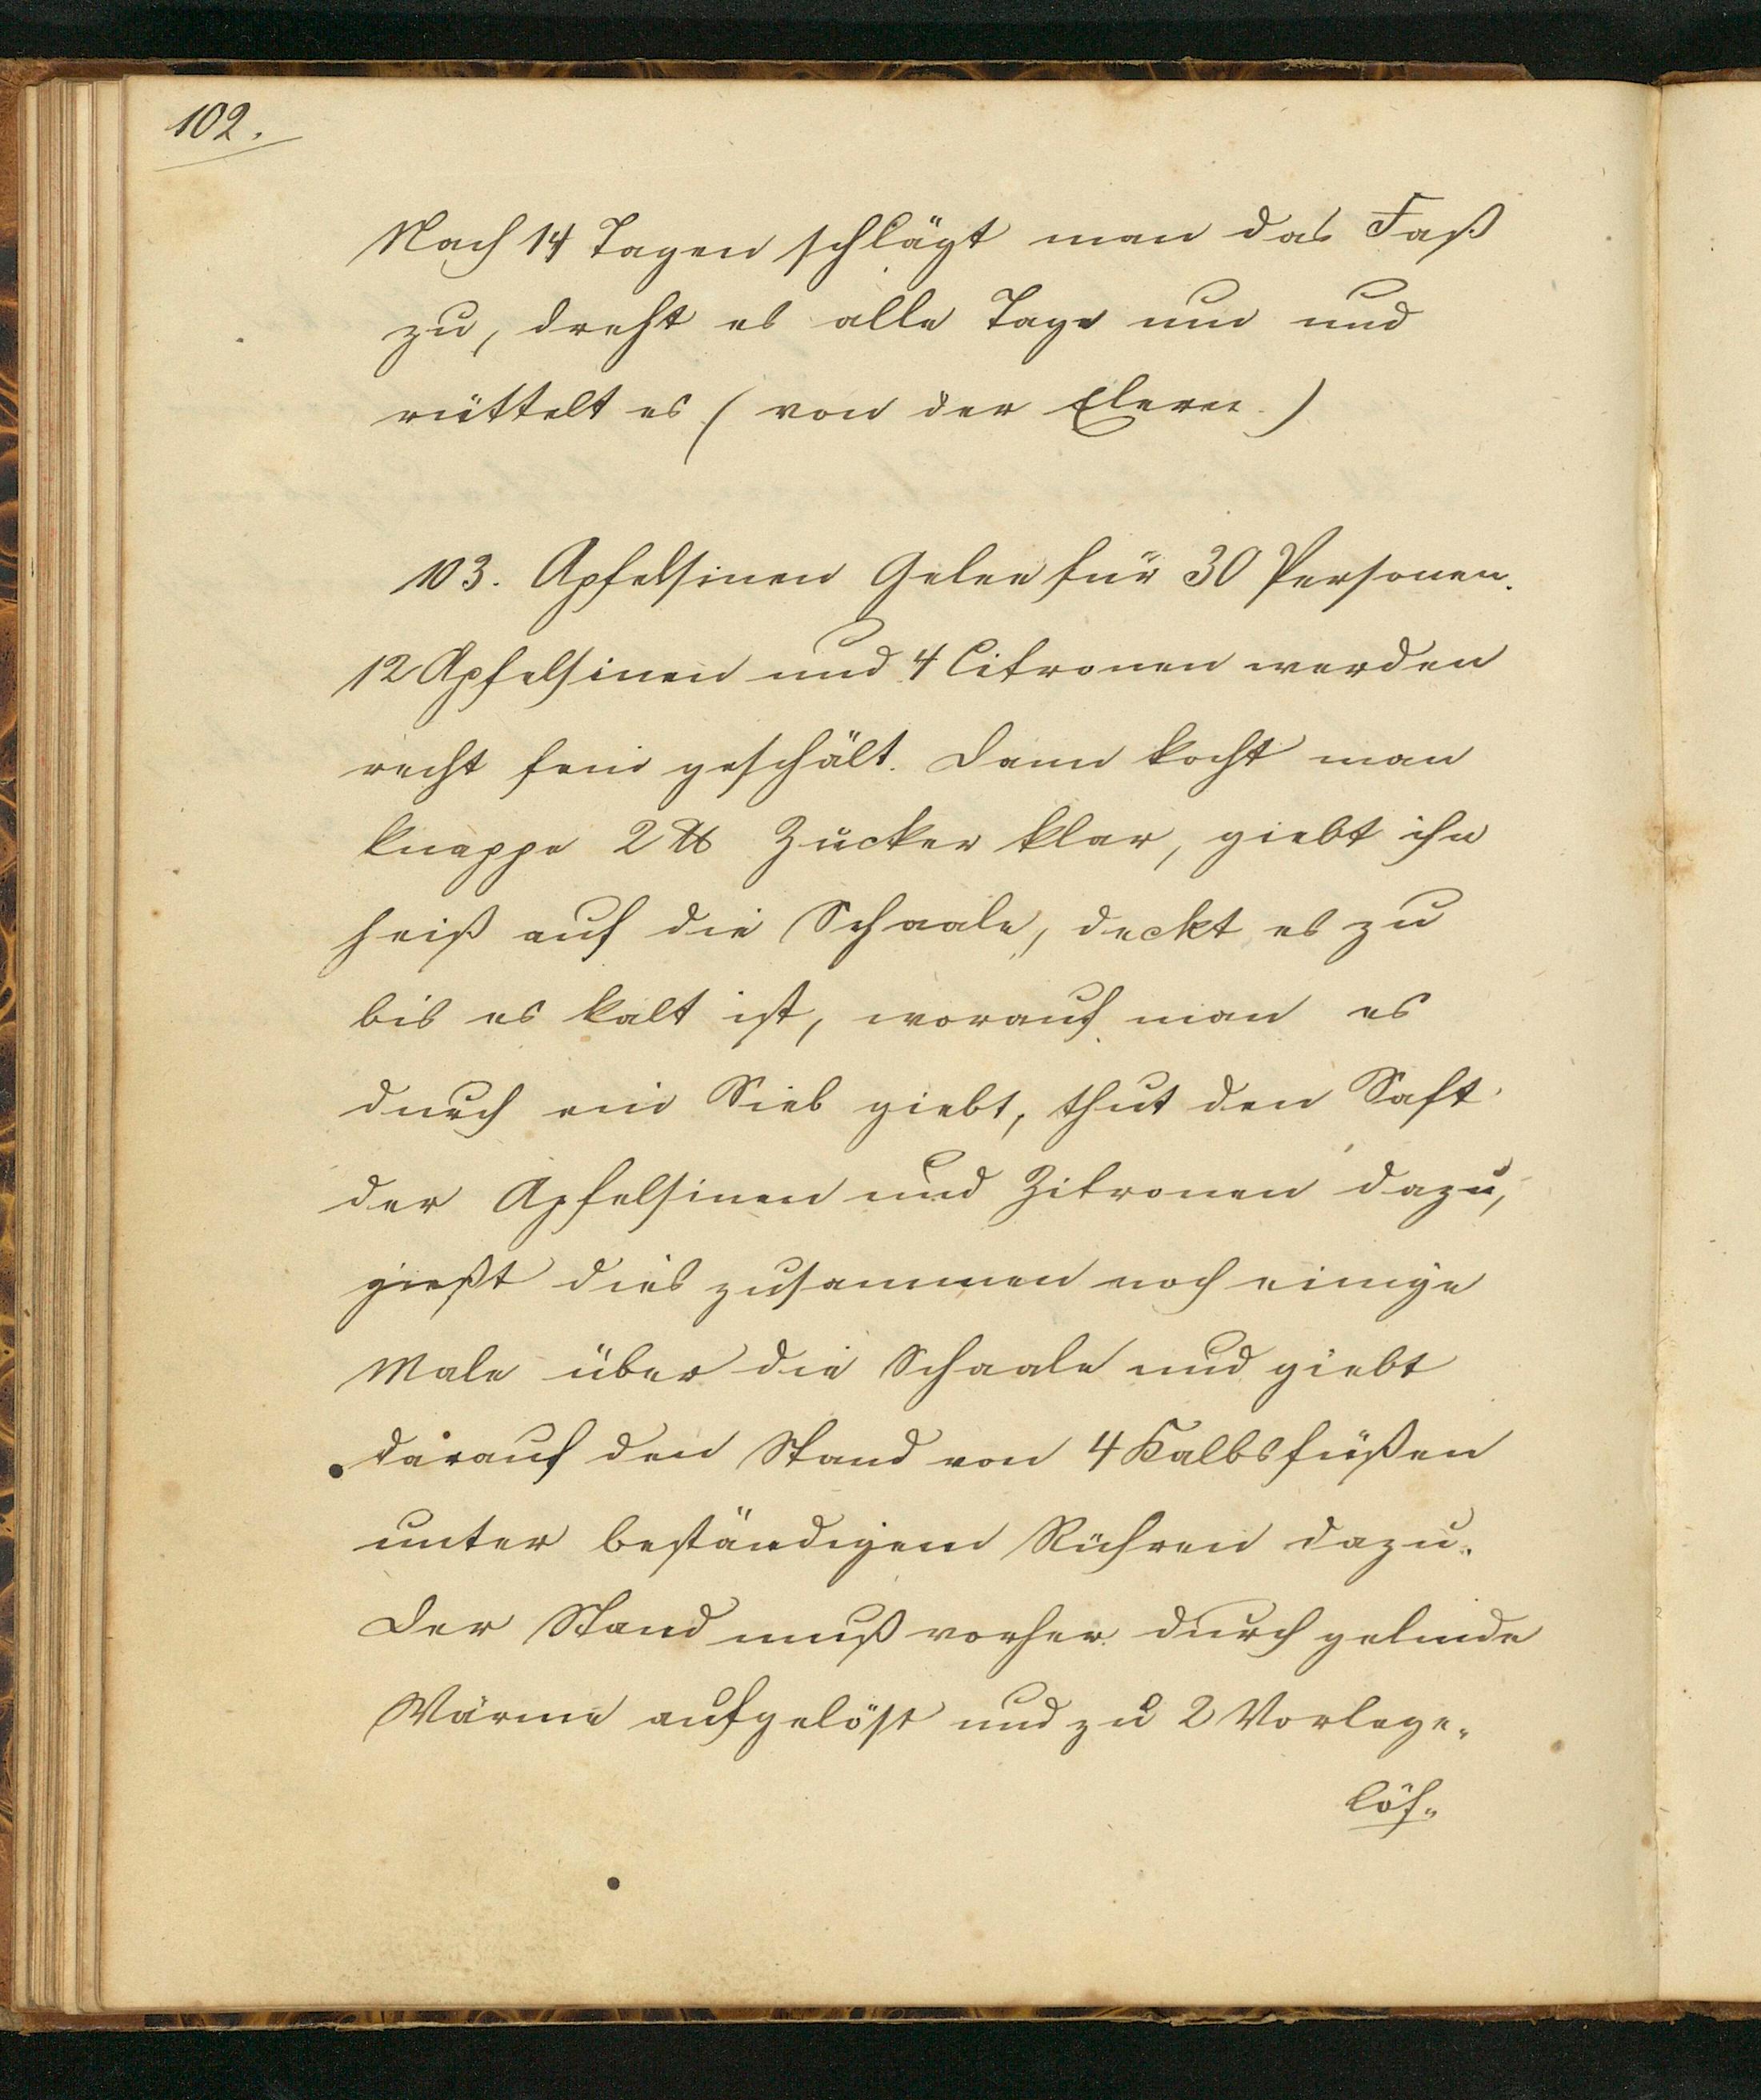 102.
Nach 14 Tagen schlägt man das Faß
zu, dreht es alle Tage um und
rüttelt es (von der
103. Apfelsinen Gelee für 30 Personen.
12 Apfelsinen und 4 Citronen werden
recht fein geschält. Dann kocht man
knappe 2 ℔ Zucker klar, giebt ihn
heiß auf die Schaale, deckt es zu
bis es kalt ist, worauf man es
durch ein Sieb giebt, thut den Saft
der Apfelsinen und Zitronen dazu,
gießt dies zusammen noch einige
Male über die Schaale und giebt
darauf den Stand von 4 Kalbsfüßen
unter beständigem Rühren dazu.
Der Stand muß vorher durch gelinde
Wärme aufgelöst und zu 2 Vorlege„
löf„